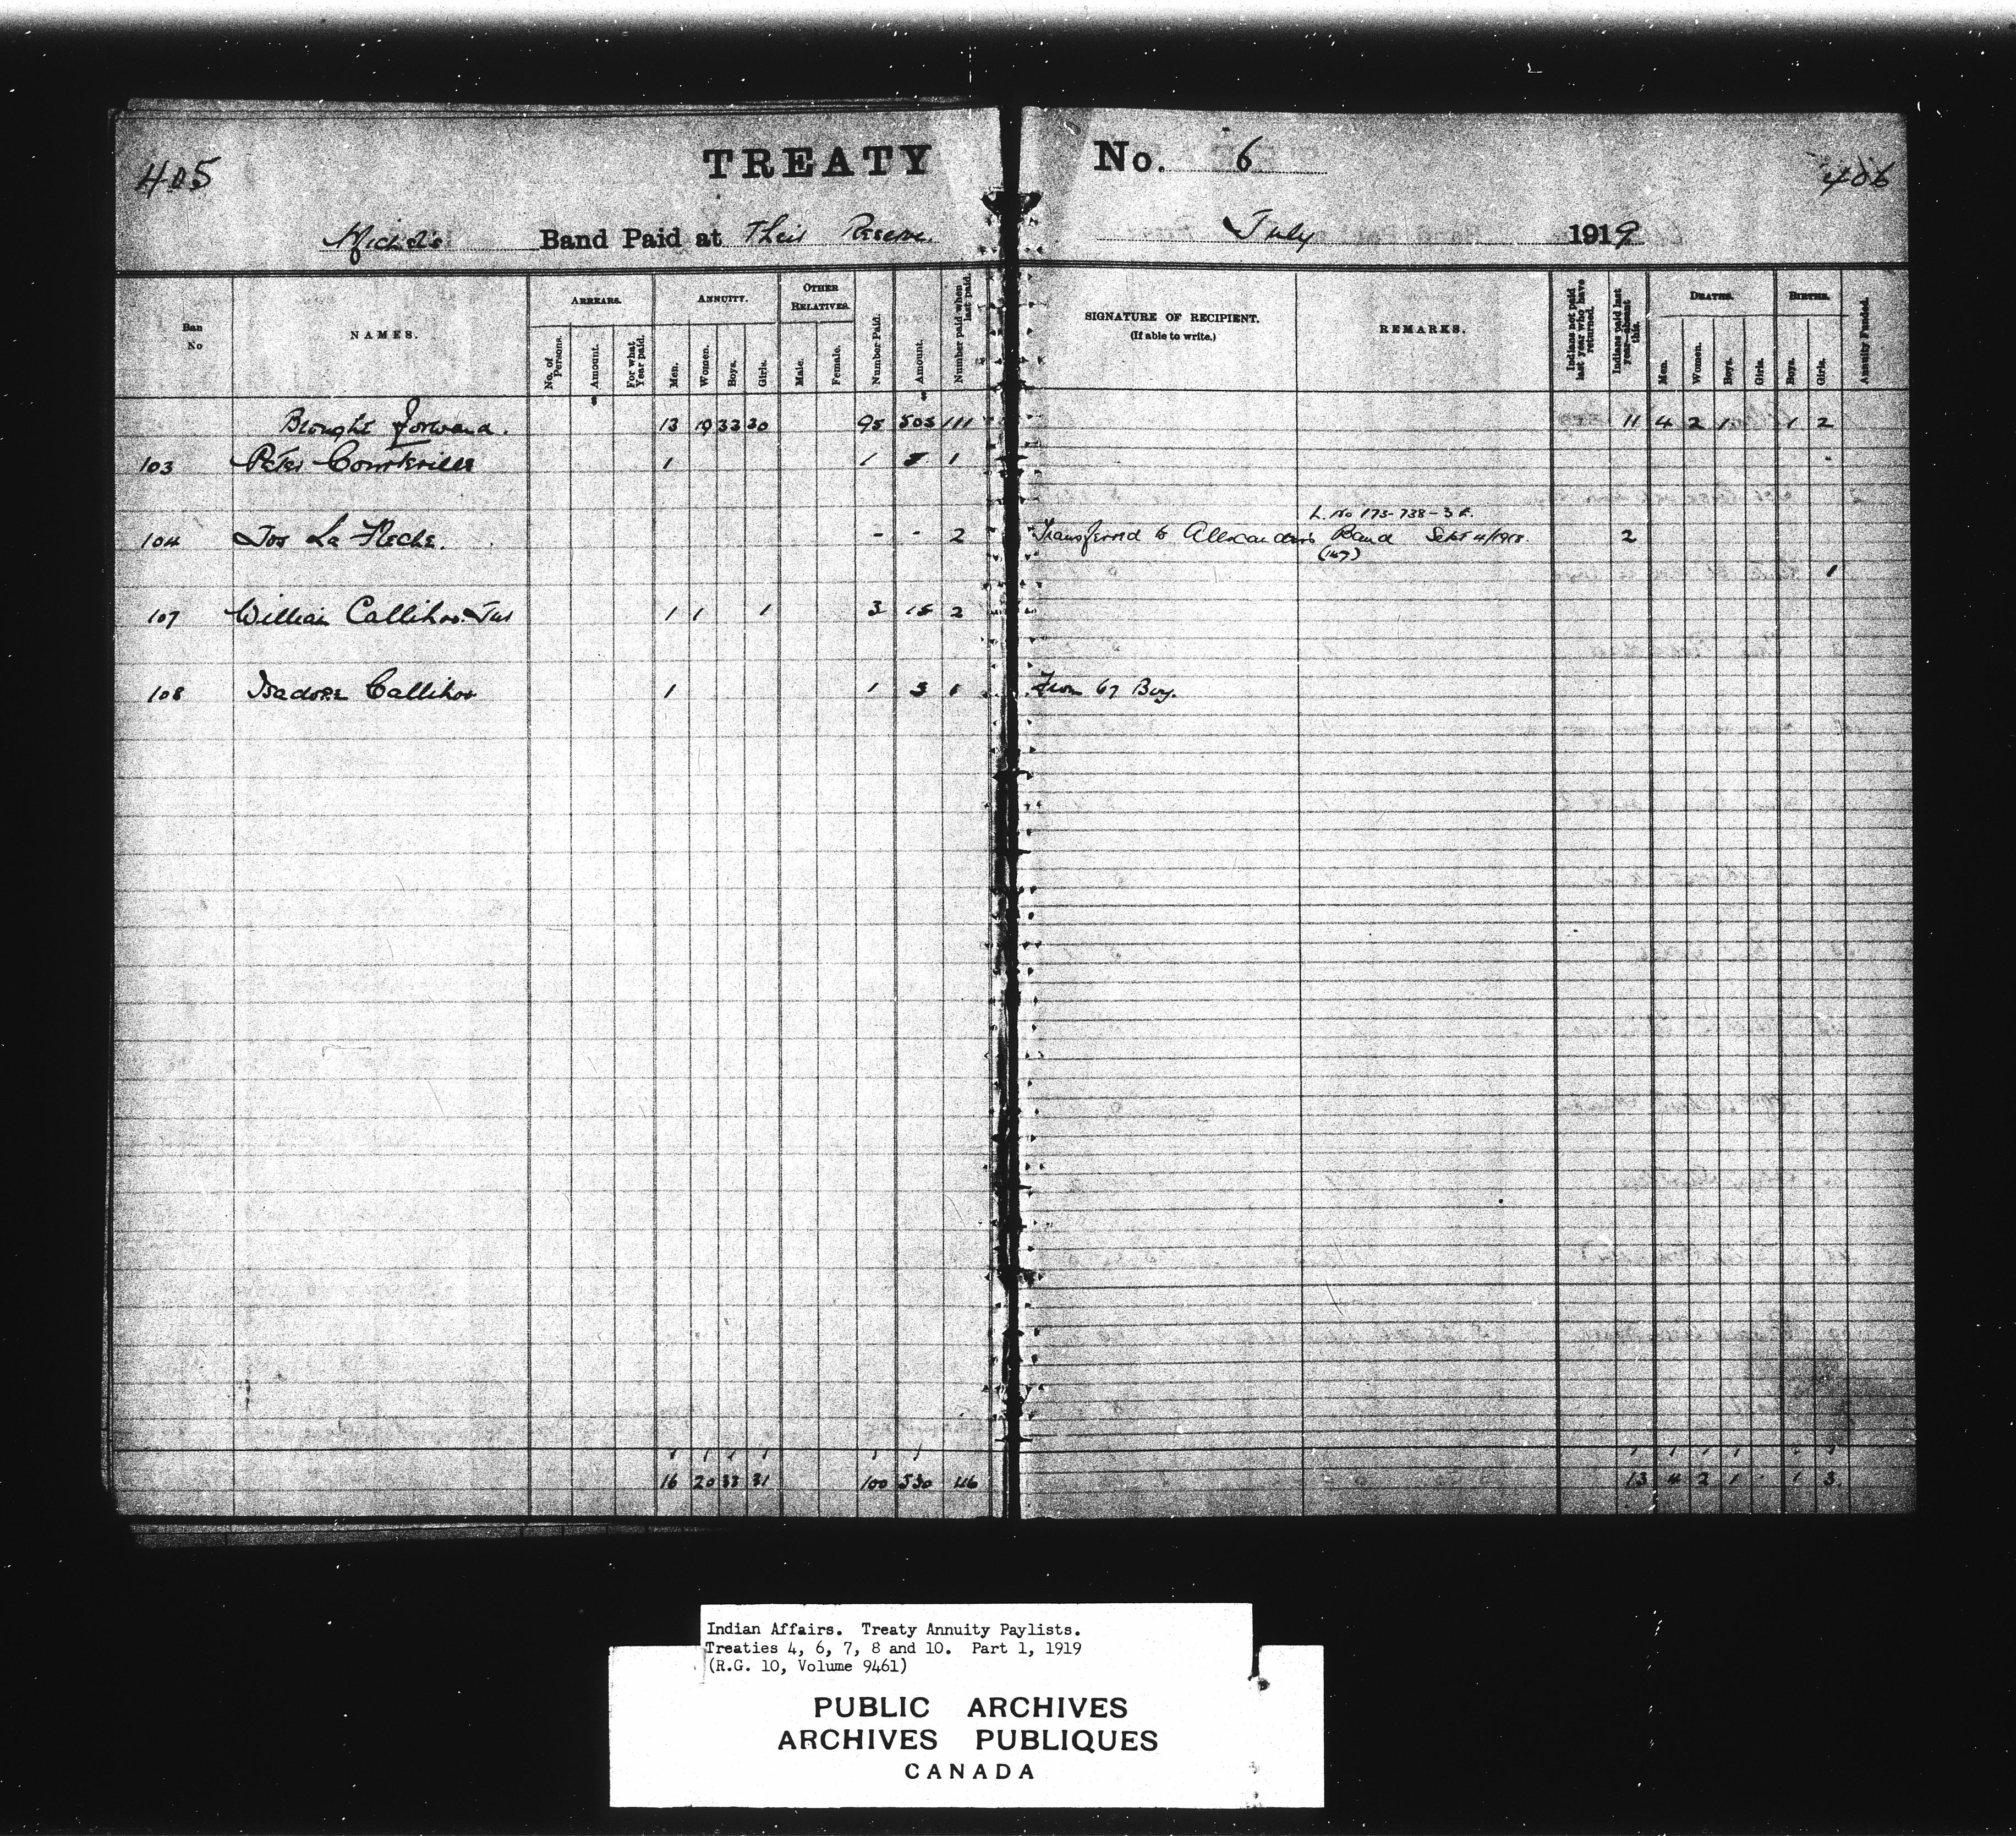 405 TREATY No. 6 406
Michel's Band Paid at Their Reserve. July 1919
Ban No
NAMES.
ARREARS.
No. of Persons.
Amount.
For what Year paid.
ANNUITY.
Men.
Women.
Boys.
Girls.
OTHER RELATIVES.
Male.
Female.
Number Paid.
Amount.
Number paid when last paid.
SIGNATURE OF RECIPIENT.
(If able to write.)
REMARKS.
Indians not paid last year who have returned.
Indians paid last year—absent this.
DEATHS.
Men.
Women.
Boys.
Girls.
BIRTHS.
Boys.
Girls.
Annuity Funded.
Brought forward. 13 19 33 30 95 505 111 11 4 2 1 1 2
103 Peter Courterille 1 1 5 1
L. No 175-738-3 A.
104 Jos La Fleche. - - 2 Transferred to Alexander's Band Sept 4/1918. 2
(147)
1
107 William Callihoo Jnr 1 1 1 3 15 2
108 Isadore Callihoo 1 1 5 1 From 67 Boy.
16 20 33 31 100 530 116 13 4 2 1 1 3
Indian Affairs. Treaty Annuity Paylists.
Treaties 4, 6, 7, 8 and 10. Part 1, 1919
(R.G. 10, Volume 9461)
PUBLIC ARCHIVES
ARCHIVES PUBLIQUES
CANADA